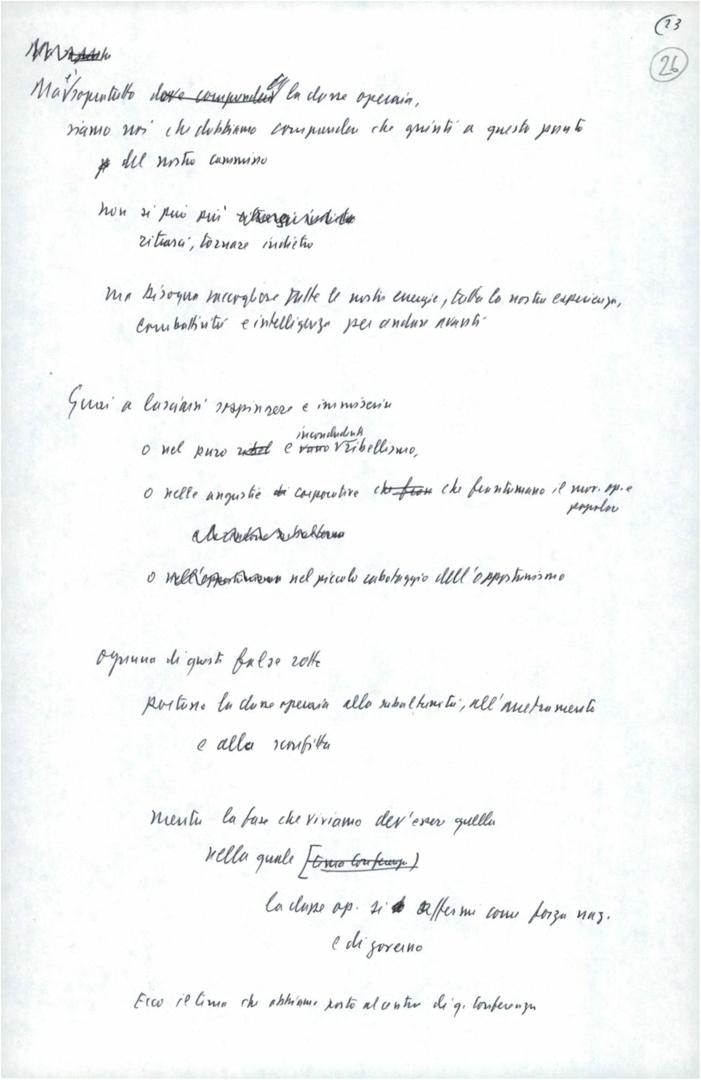 23
26
Ma è sopratutto dove comprendere la classe operaia,
siamo noi che dobbiamo comprendere che giunti a questo punto
del nostro cammino
non si può più
ritirarsi, tornare indietro
ma bisogna raccogliere tutte le nostre energie, tutta la nostra esperienza,
combattività e intelligenza per andare avanti
Guai a lasciarsi respingere e immiserire
inconcludente
o nel puro e vano ribellismo,
o nelle angustie corporative che frantumano il mov. op. e
popolare
o nel piccolo cabotaggio dell'opportunismo
ognuna di queste false rotte
portano la classe operaia alla subalternità, all'arretramento
e alla sconfitta
mentre la fase che viviamo dev'esser quella
nella quale [(tema Conferenza)
la classe op. si affermi come forza naz.
e di governo
Ecco il tema che abbiamo posto al centro di q. Conferenza